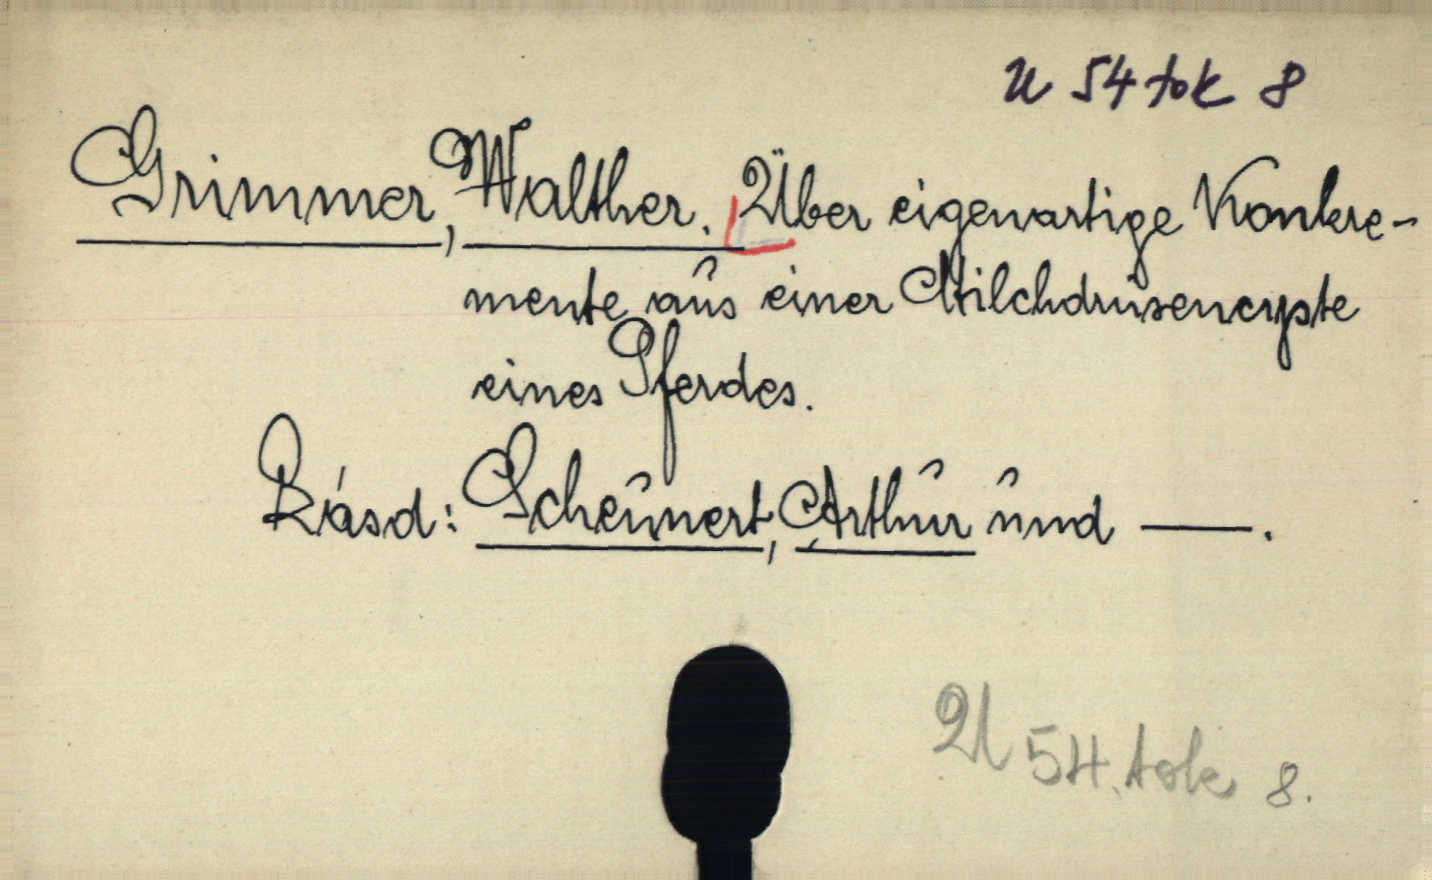 U 54 tok 8
Grimmer, Walther. Über eigenartige Konkre-
mente aus einer Milchdrüsencyste
eines Pferdes.
Lásd: Scheunert, Arthur und —.
U 54. tok 8.